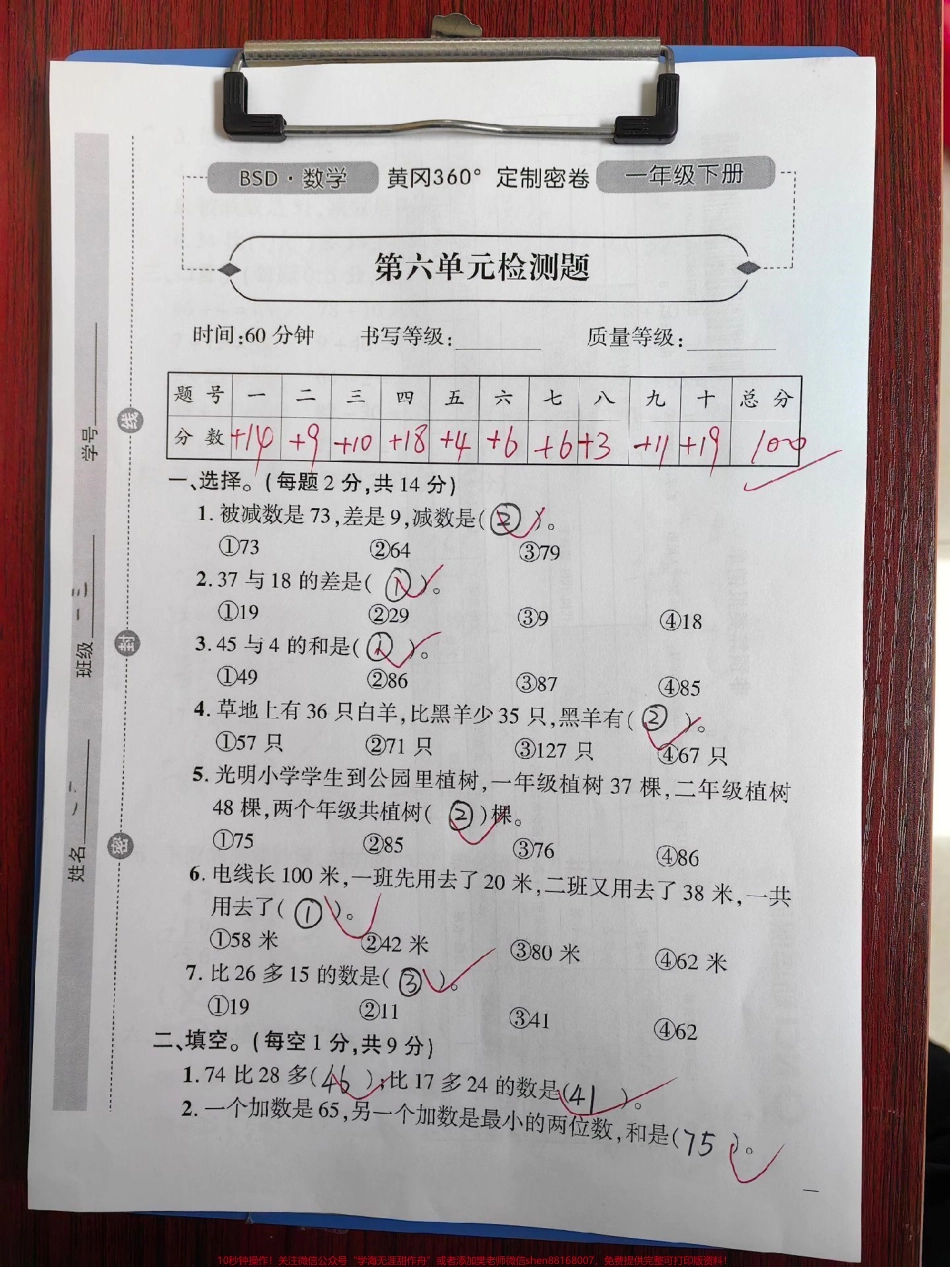 BSD·数学 黄冈360°定制密卷 一年级下册
第六单元检测题
时间:60分钟 书写等级:________ 质量等级:________
题号 一 二 三 四 五 六 七 八 九 十 总分
分数 +14 +9 +10 +18 +4 +6 +6 +3 +11 +19 100
一、选择。(每题2分,共14分)
1.被减数是73,差是9,减数是(②)。
①73 ②64 ③79
2.37与18的差是(①)。
①19 ②29 ③9 ④18
3.45与4的和是(①)。
①49 ②86 ③87 ④85
4.草地上有36只白羊,比黑羊少35只,黑羊有(②)。
①57只 ②71只 ③127只 ④67只
5.光明小学学生到公园里植树,一年级植树37棵,二年级植树
48棵,两个年级共植树(②)棵。
①75 ②85 ③76 ④86
6.电线长100米,一班先用去了20米,二班又用去了38米,一共
用去了(①)。
①58米 ②42米 ③80米 ④62米
7.比26多15的数是(③)。
①19 ②11 ③41 ④62
二、填空。(每空1分,共9分)
1.74比28多(46);比17多24的数是(41)。
2.一个加数是65,另一个加数是最小的两位数,和是(75)。
学号________
班级________
姓名________
线
封
密
10秒钟操作!关注微信公众号“学海无涯甜作舟”或者添加樊老师微信shen88168007,免费提供完整可打印版资料!